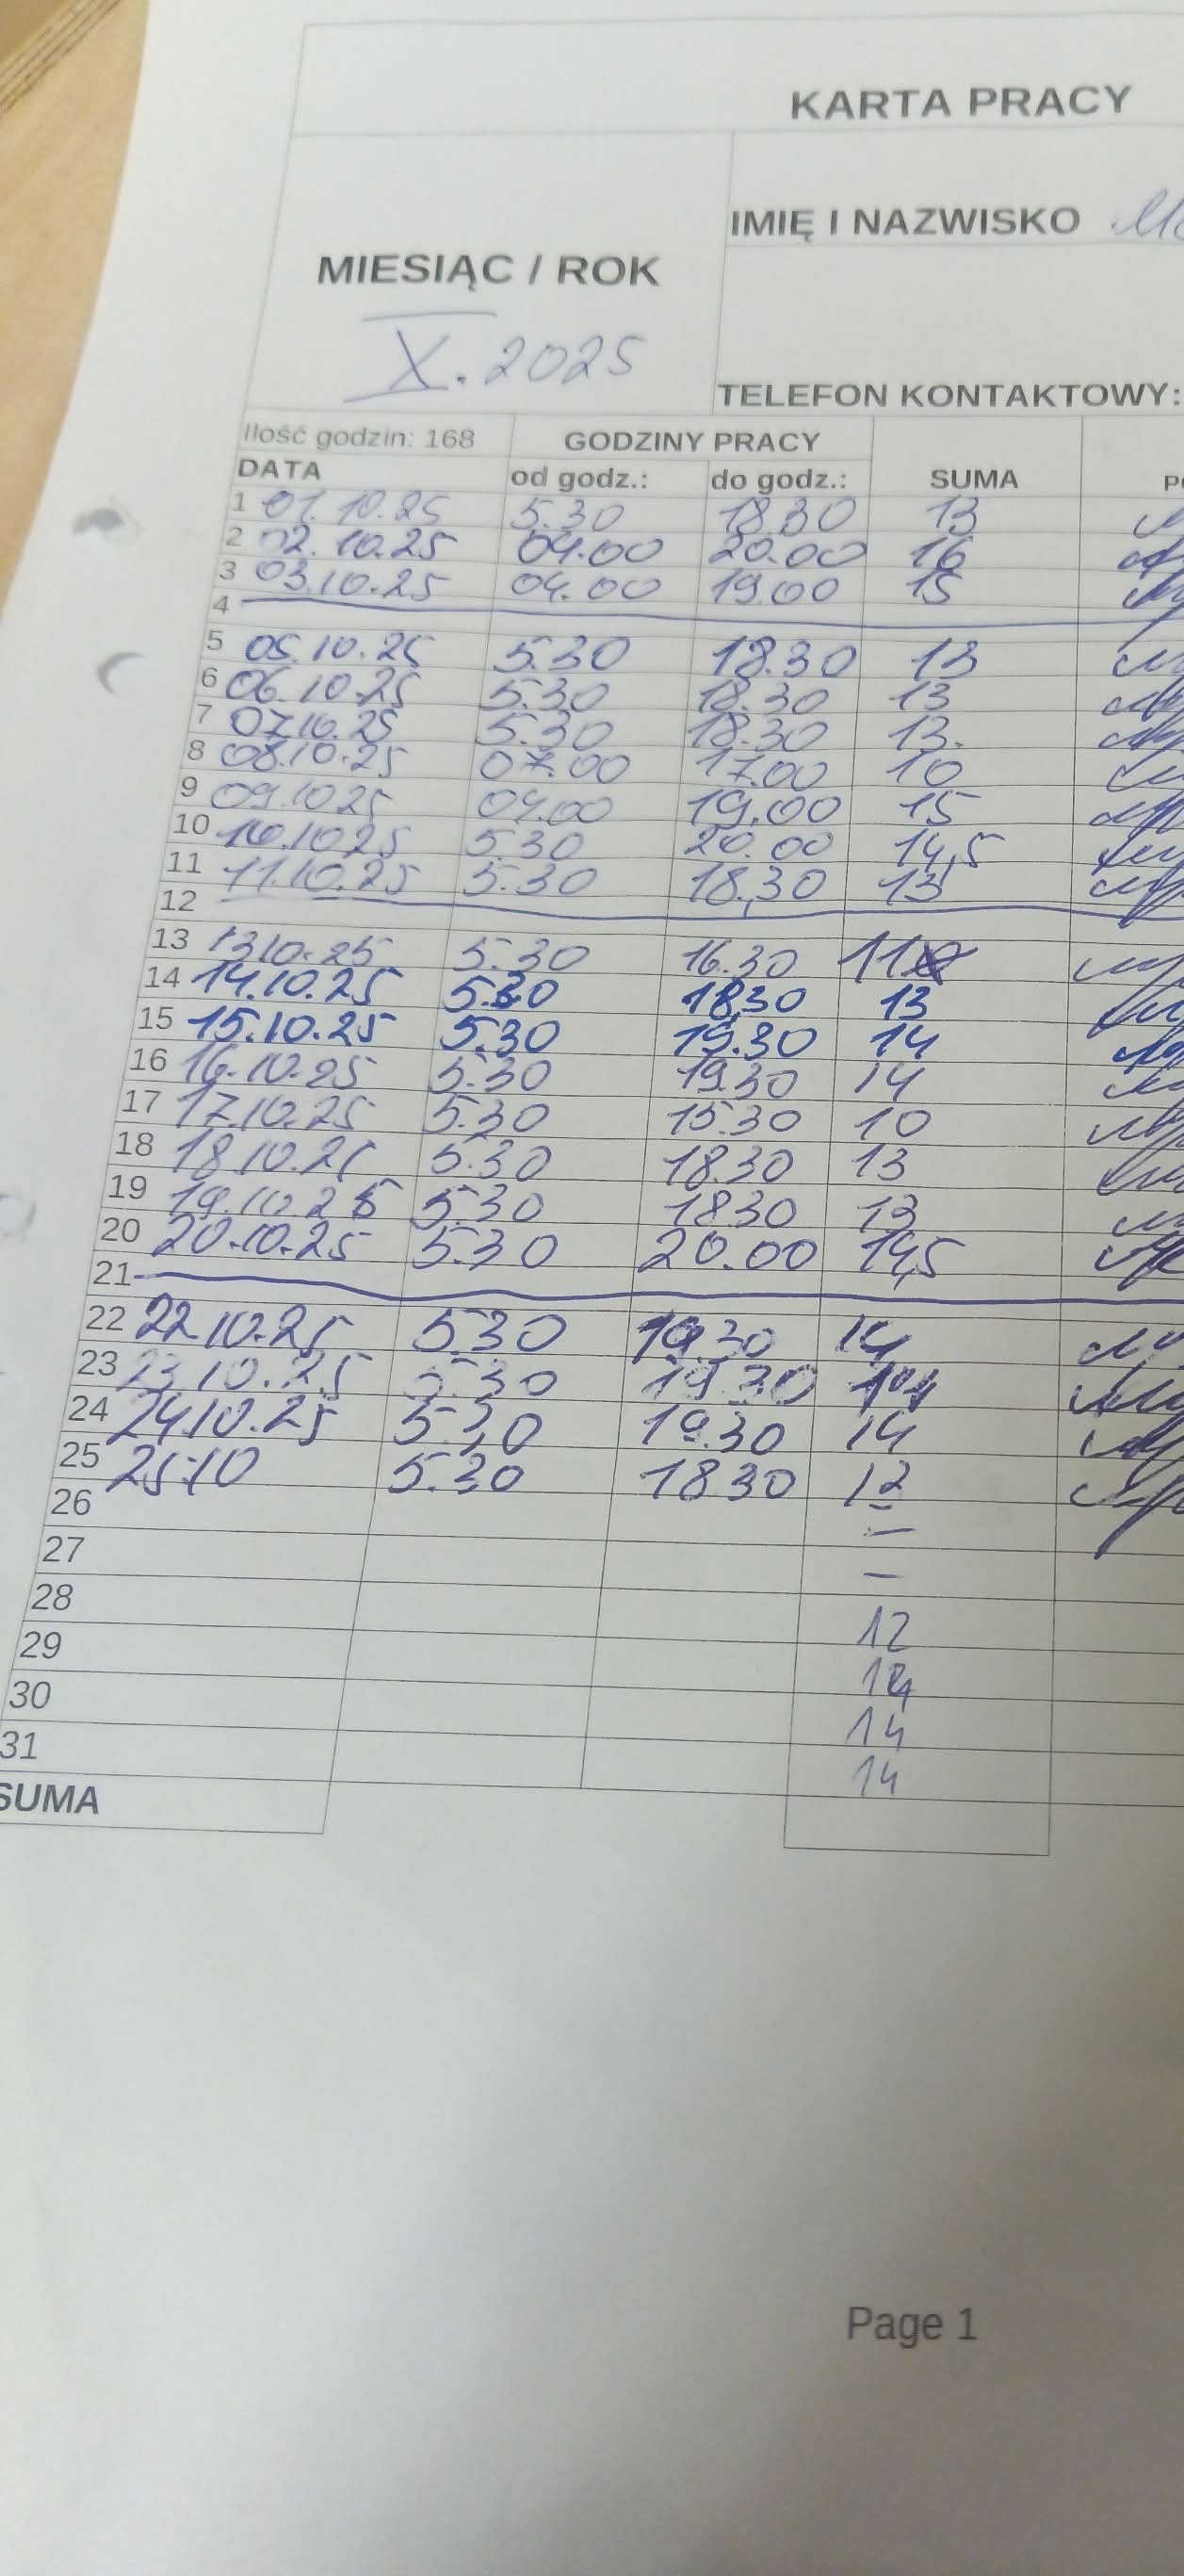 KARTA PRACY
IMIĘ I NAZWISKO
MIESIĄC / ROK
X. 2025
TELEFON KONTAKTOWY:
Ilość godzin: 168 GODZINY PRACY
DATA od godz.: do godz.: SUMA
1 01.10.25 5.30 18.30 13
2 02.10.25 04.00 20.00 16
3 03.10.25 04.00 19.00 15
4
5 05.10.25 5.30 18.30 13
6 06.10.25 5.30 18.30 13
7 07.10.25 5.30 18.30 13.
8 08.10.25 07.00 17.00 10
9 09.10 25 04.00 19.00 15
10 10.10 25 5.30 20.00 14,5
11 11.10.25 5.30 18.30 13
12
13 13 10.25 5.30 16.30 11
14 14.10.25 5.30 18.30 13
15 15.10.25 5.30 19.30 14
16 16.10.25 5.30 19.30 14
17 17.10.25 5.30 15.30 10
18 18.10.25 5.30 18.30 13
19 19.10.25 5.30 18 30 13
20 20.10.25 5.30 20.00 14,5
21
22 22 10.25 5.30 19.30 14
23 23 10.25 5.30 19.30 14
24 24.10.25 5.30 19.30 14
25 25.10 5.30 18.30
26 —
27 —
28 12
29 14
30 14
31 14
SUMA
Page 1